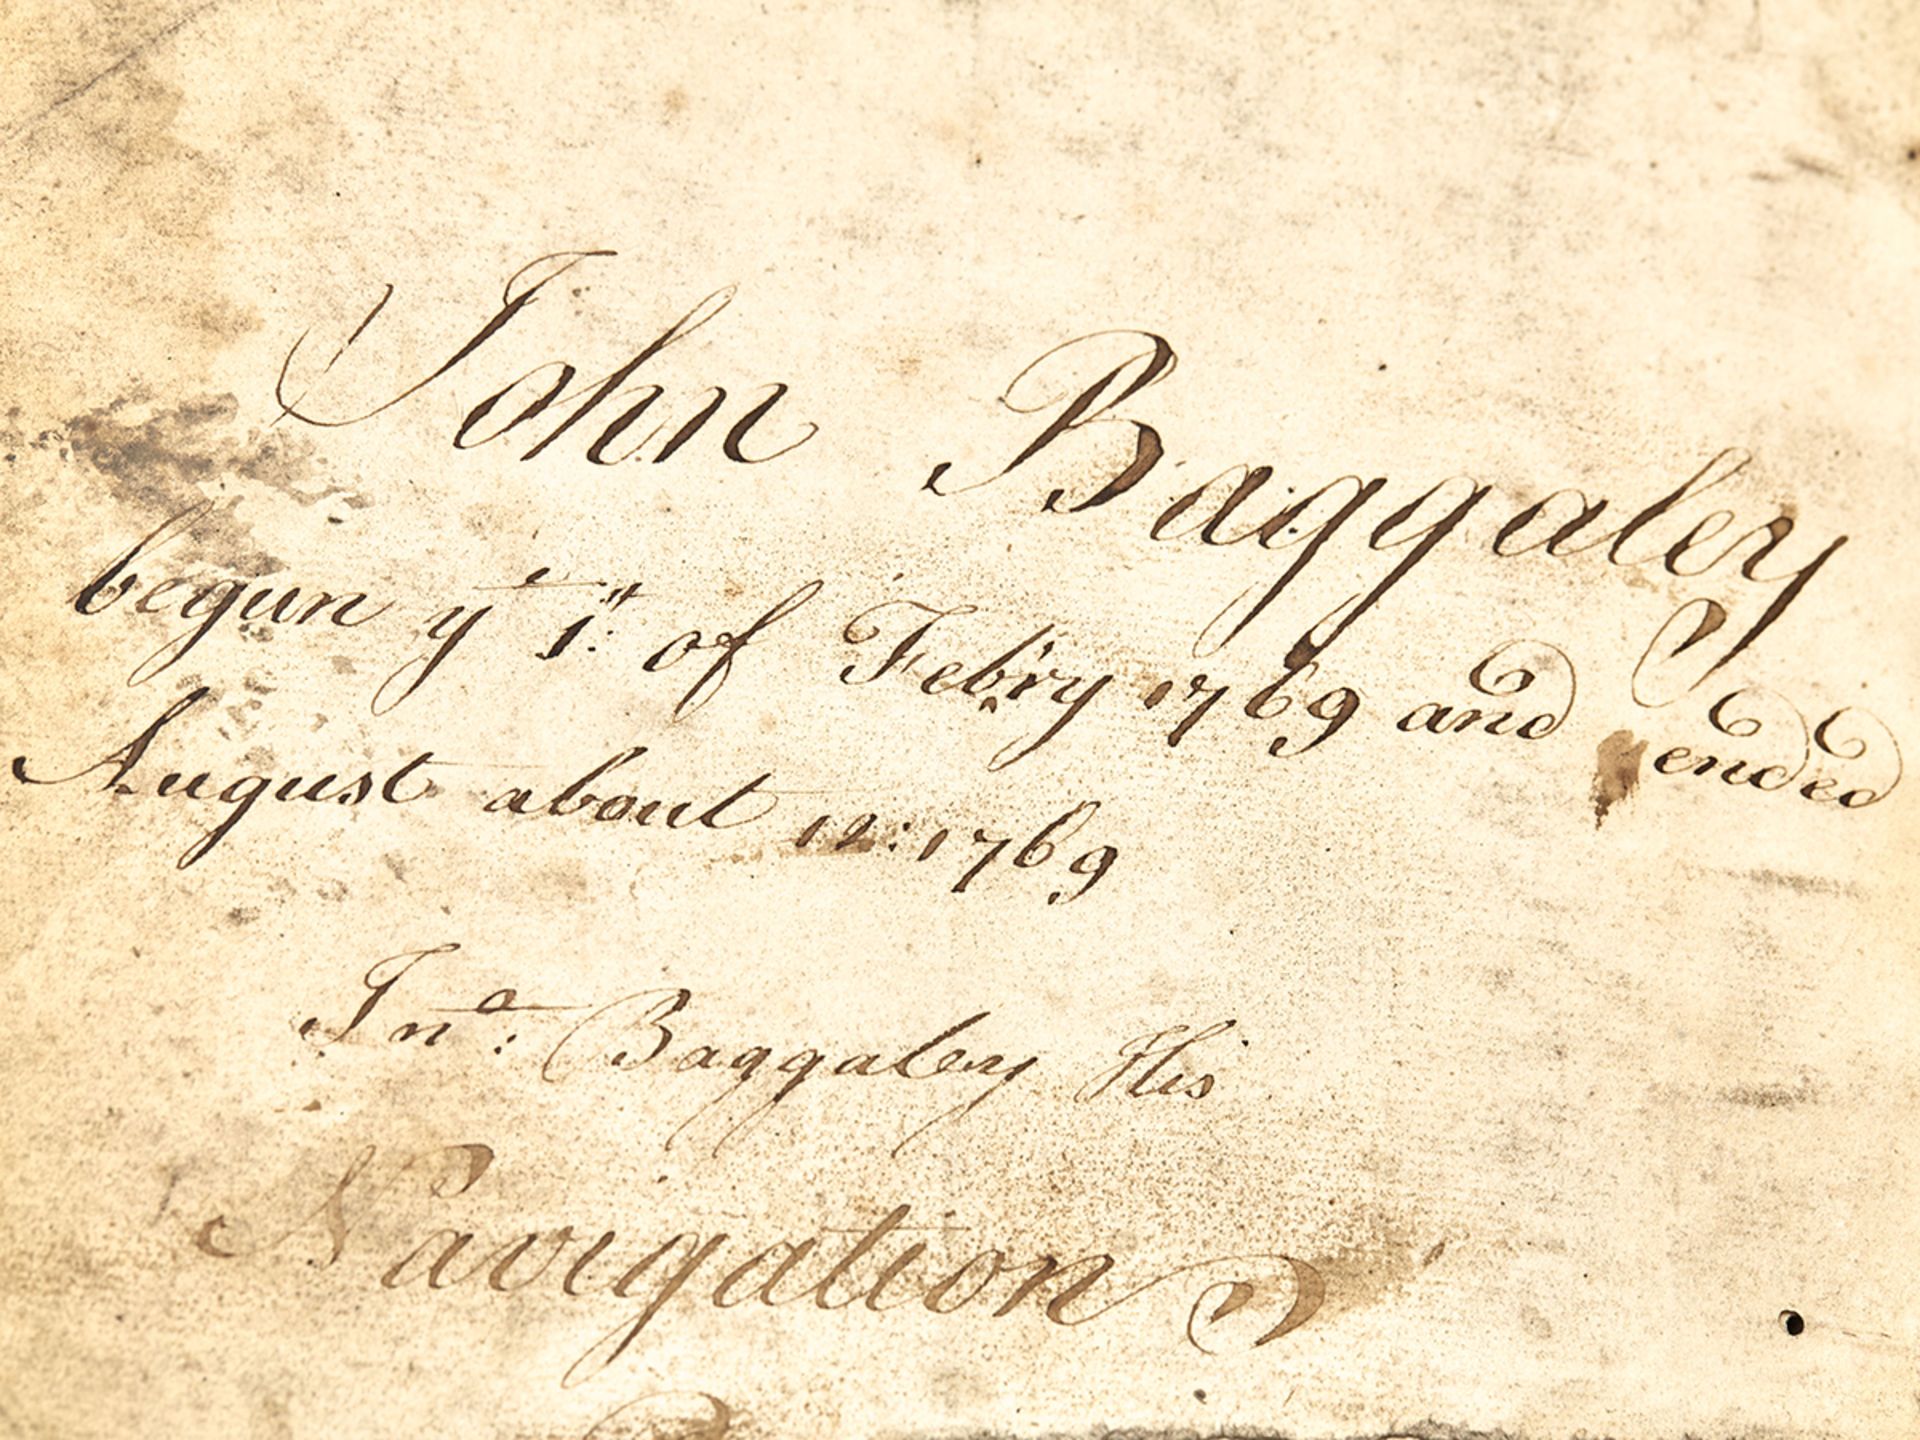 John Baggaley
begun yᵉ 1ˢᵗ: of Feb'ry 1769 and ended
August about 12: 1769
Jnᵒ: Baggaley His
Navigation